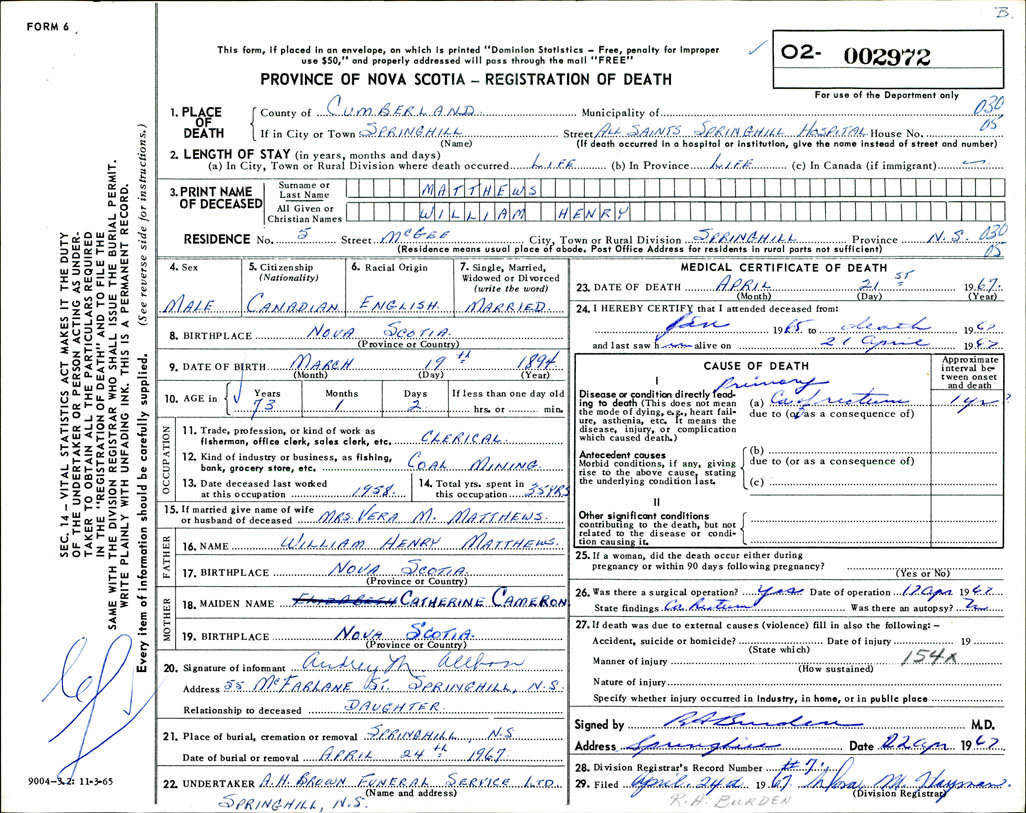 B.
FORM 6
This form, if placed in an envelope, on which is printed "Dominion Statistics – Free, penalty for improper
use $50," and properly addressed will pass through the mail "FREE"
PROVINCE OF NOVA SCOTIA – REGISTRATION OF DEATH
O2- 002972
For use of the Department only
SEC. 14 – VITAL STATISTICS ACT MAKES IT THE DUTY
OF THE UNDERTAKER OR PERSON ACTING AS UNDER-
TAKER TO OBTAIN ALL THE PARTICULARS REQUIRED
IN THE "REGISTRATION OF DEATH" AND TO FILE THE
SAME WITH THE DIVISION REGISTRAR WHO SHALL ISSUE THE BURIAL PERMIT.
WRITE PLAINLY WITH UNFADING INK. THIS IS A PERMANENT RECORD.
Every item of information should be carefully supplied. (See reverse side for instructions.)
1. PLACE OF DEATH
County of CUMBERLAND Municipality of 030
If in City or Town SPRINGHILL Street ALL SAINTS SPRINGHILL HOSPITAL House No. 05
(Name) (If death occurred in a hospital or institution, give the name instead of street and number)
2. LENGTH OF STAY (in years, months and days)
(a) In City, Town or Rural Division where death occurred LIFE (b) In Province LIFE (c) In Canada (if immigrant) —
3. PRINT NAME OF DECEASED
Surname or Last Name MATTHEWS
All Given or Christian Names WILLIAM HENRY
RESIDENCE No. 5 Street MCGEE City, Town or Rural Division SPRINGHILL Province N.S. 030
(Residence means usual place of abode. Post Office Address for residents in rural parts not sufficient) 05
4. Sex
MALE
5. Citizenship
(Nationality)
CANADIAN
6. Racial Origin
ENGLISH
7. Single, Married,
Widowed or Divorced
(write the word)
MARRIED
8. BIRTHPLACE NOVA SCOTIA
(Province or Country)
9. DATE OF BIRTH MARCH 19th 1894
(Month) (Day) (Year)
10. AGE in Years 73 Months 1 Days 2 If less than one day old hrs. or min.
OCCUPATION
11. Trade, profession, or kind of work as
fisherman, office clerk, sales clerk, etc. CLERICAL
12. Kind of industry or business, as fishing,
bank, grocery store, etc. COAL MINING
13. Date deceased last worked
at this occupation 1958
14. Total yrs. spent in
this occupation 35 YRS
15. If married give name of wife
or husband of deceased MRS. VERA M. MATTHEWS
FATHER
16. NAME WILLIAM HENRY MATTHEWS
17. BIRTHPLACE NOVA SCOTIA
(Province or Country)
MOTHER
18. MAIDEN NAME ELIZABETH CATHERINE CAMERON
19. BIRTHPLACE NOVA SCOTIA
(Province or Country)
20. Signature of informant Audrey M.
Address 55 MCFARLANE ST. SPRINGHILL, N.S.
Relationship to deceased DAUGHTER
21. Place of burial, cremation or removal SPRINGHILL, N.S
Date of burial or removal APRIL 24th 1967
22. UNDERTAKER A.H. BROWN FUNERAL SERVICE LTD.
(Name and address)
SPRINGHILL, N.S.
9004-3.2: 11-3-65
MEDICAL CERTIFICATE OF DEATH
23. DATE OF DEATH APRIL 21ST 1967
(Month) (Day) (Year)
24. I HEREBY CERTIFY that I attended deceased from:
Jan 1965 to death 1967
and last saw him alive on 21 April 1967
CAUSE OF DEATH
Approximate
interval be-
tween onset
and death
I
Primary
Disease or condition directly lead-
ing to death (This does not mean
the mode of dying, e.g., heart fail-
ure, asthenia, etc. It means the
disease, injury, or complication
which caused death.)
(a) Ca of rectum 1 yr ?
due to (or as a consequence of)
Antecedent causes
Morbid conditions, if any, giving
rise to the above cause, stating
the underlying condition last.
(b)
due to (or as a consequence of)
(c)
II
Other significant conditions
contributing to the death, but not
related to the disease or condi-
tion causing it.
25. If a woman, did the death occur either during
pregnancy or within 90 days following pregnancy?
(Yes or No)
26. Was there a surgical operation? Yes Date of operation 12 Apr 1967
State findings Ca Rectum Was there an autopsy? No
27. If death was due to external causes (violence) fill in also the following: –
Accident, suicide or homicide? Date of injury 19
(State which)
Manner of injury 154X
(How sustained)
Nature of injury
Specify whether injury occurred in Industry, in home, or in public place
Signed by RH Burden M.D.
Address Springhill Date 22 Apr 1967
28. Division Registrar's Record Number #7
29. Filed April 24d 1967 M.
(Division Registrar)
R.H. BURDEN